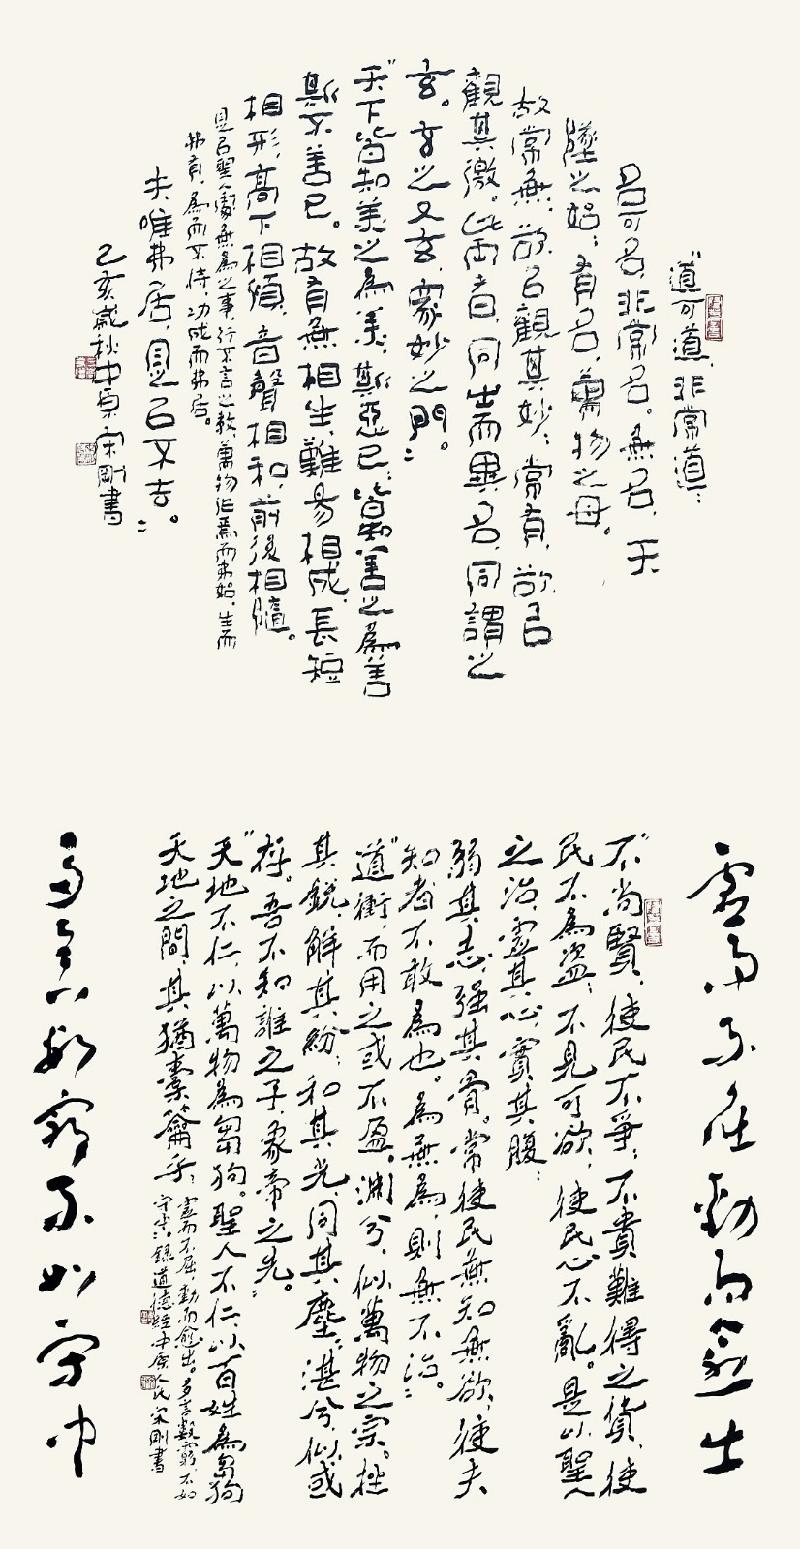 "道可道,非常道;
名可名,非常名。無名,天
墬之始;有名,萬物之母。
故常無,欲㠯觀其妙;常有,欲㠯
觀其徼。此兩者,同出而異名,同謂之
玄。玄之又玄,衆妙之門。"
"天下皆知美之為美,斯惡已;皆知善之為善
斯不善已。故有無相生,難易相成,長短
相形,高下相傾,音聲相和,前後相隨。
是㠯聖人處無為之事,行不言之教,萬物作焉而弗始,生而
弗有,為而不恃,功成而弗居。
夫唯弗居,是㠯不去。"
己亥歲秋中原宋剛書
虛而不屈動而愈出
"不尚賢,使民不爭;不貴難得之貨,使
民不為盜;不見可欲,使民心不亂。是以聖人
之治,虛其心,實其腹,
弱其志,强其骨。常使民無知無欲,使夫
知者不敢為也。為無為,則無不治。"
"道衝,而用之或不盈。淵兮,似萬物之宗。挫
其銳,解其紛,和其光,同其塵,湛兮,似或
存。吾不知誰之子,象帝之先。"
"天地不仁,以萬物為芻狗。聖人不仁,以百姓為芻狗
天地之間,其猶橐籥乎,
虛而不屈,動而愈出。多言數窮,不如
守中"。錄道德經中原人氏宋剛書
多言數窮不如守中